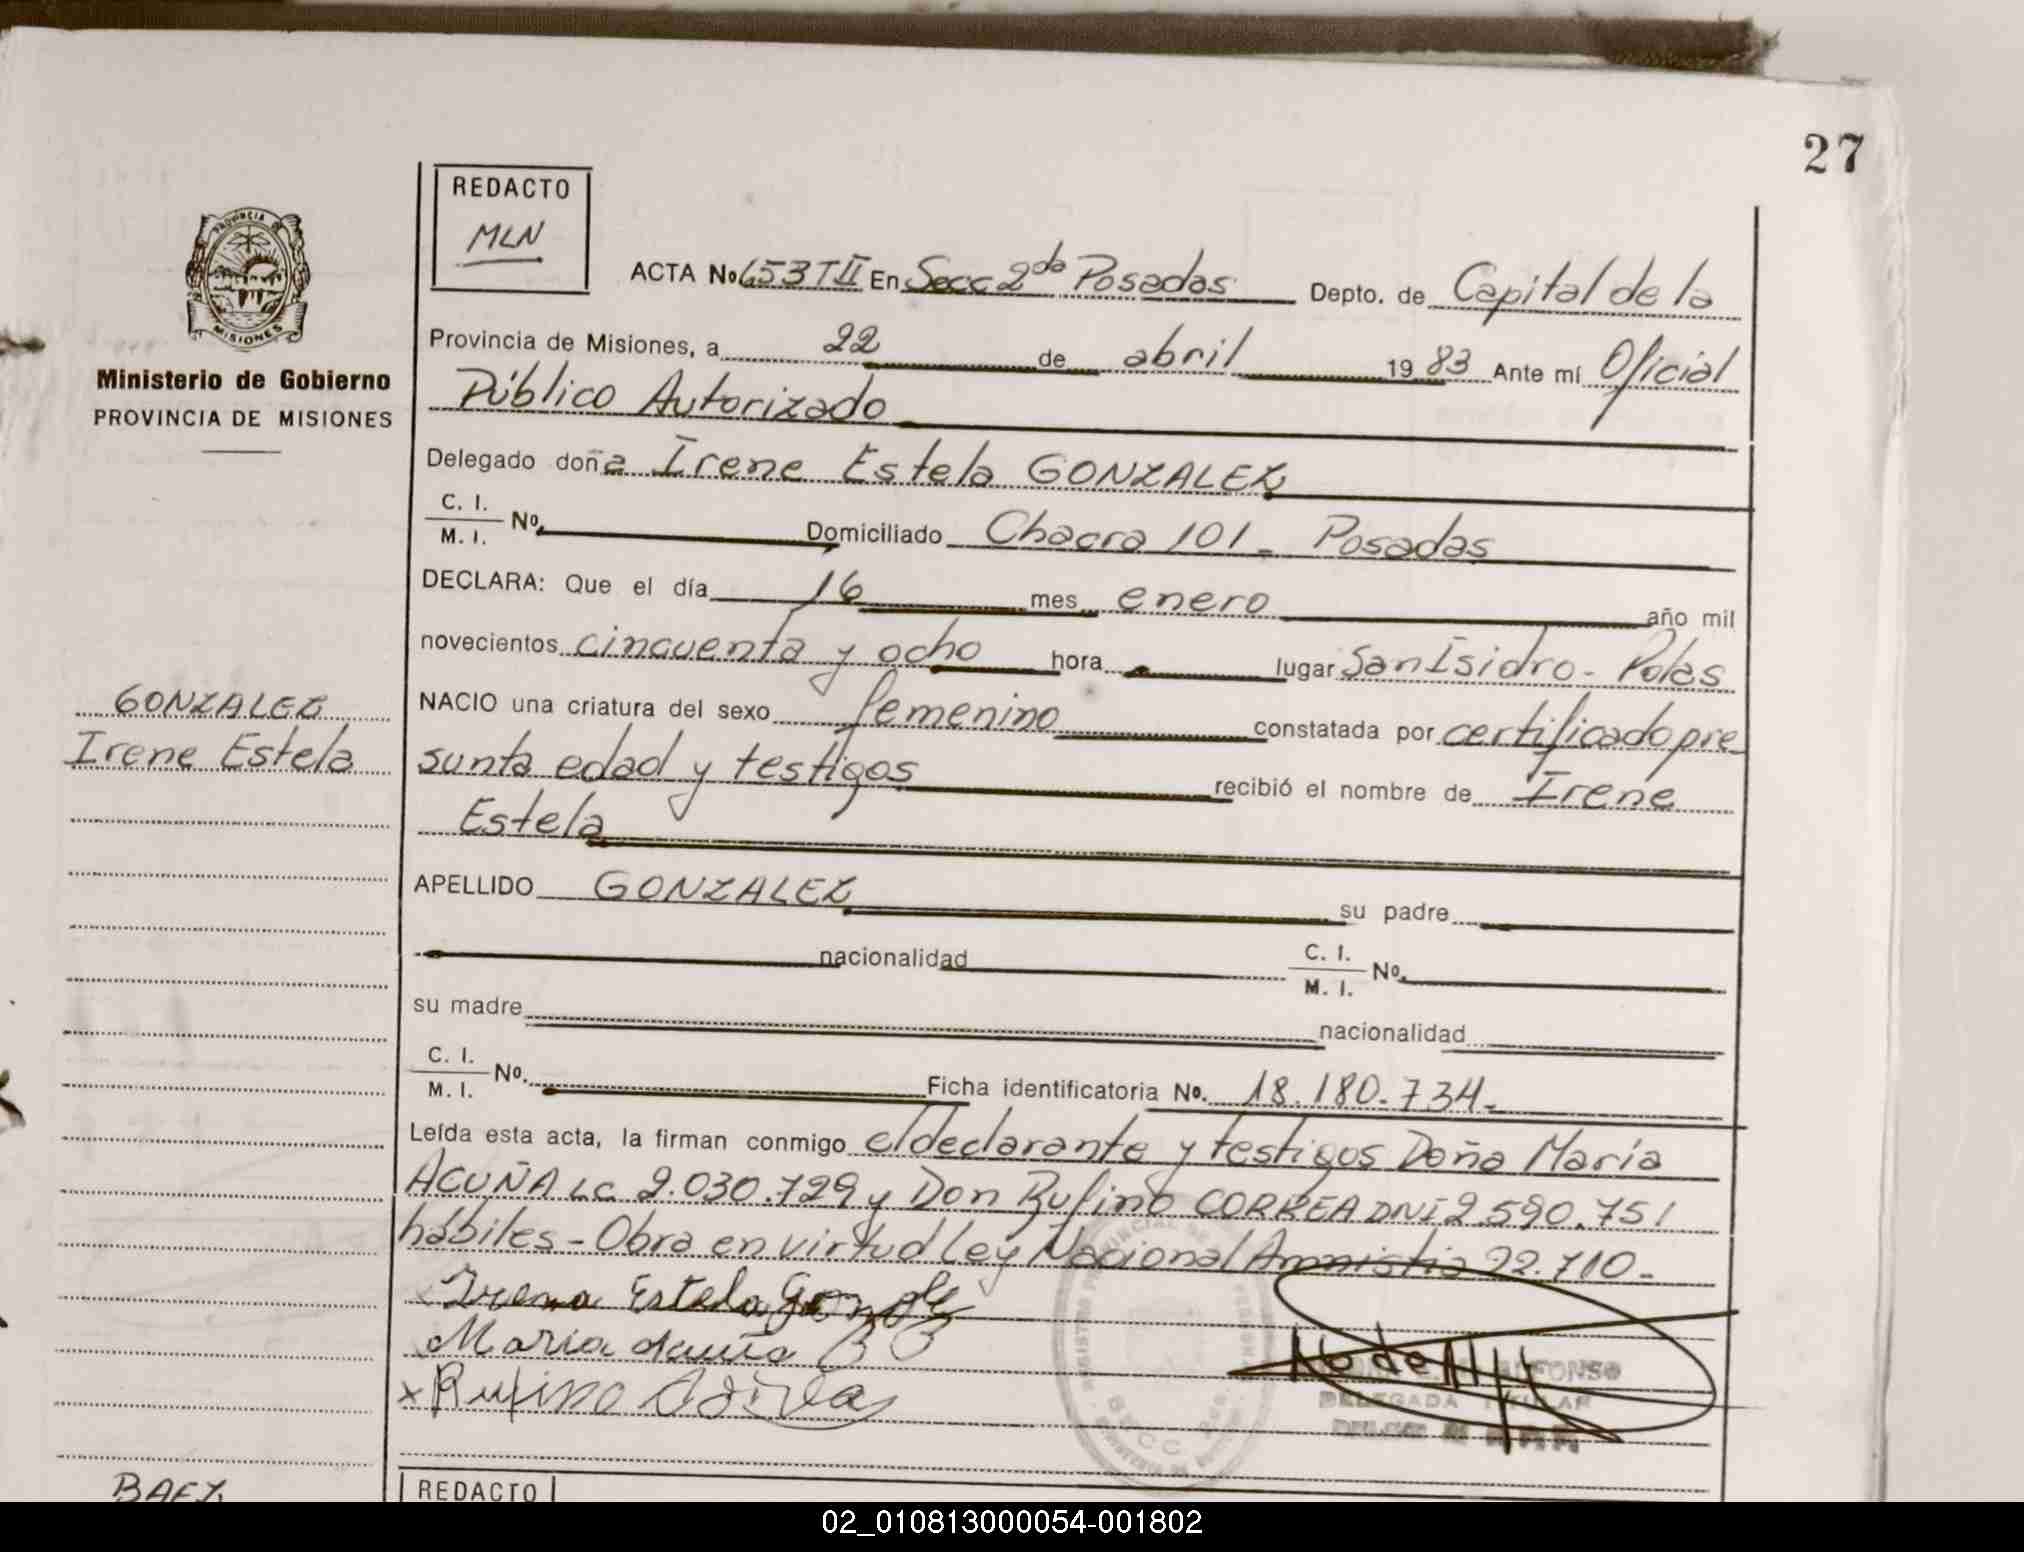 27
REDACTO
MLN
PROVINCIA DE
MISIONES
Ministerio de Gobierno
PROVINCIA DE MISIONES
ACTA No 653 T II En Secc 2da Posadas Depto. de Capital de la
Provincia de Misiones, a 22 de abril 19 83 Ante mí Oficial
Público Autorizado
Delegado doña Irene Estela GONZALEZ
C. I.
M. I. No. Domiciliado Chacra 101 - Posadas
DECLARA: Que el día 16 mes enero año mil
novecientos cincuenta y ocho hora lugar San Isidro - Pdas
GONZALEZ
Irene Estela
NACIO una criatura del sexo femenino constatada por certificado pre
sunta edad y testigos recibió el nombre de Irene
Estela
APELLIDO GONZALEZ su padre
nacionalidad C. I.
M. I. No.
su madre nacionalidad
C. I.
M. I. No. Ficha identificatoria No. 18.180.734-
Leída esta acta, la firman conmigo el declarante y testigos Doña María
ACUÑA LC 2.030.729 y Don Rufino CORREA DNI 2.590.751
hábiles - Obra en virtud Ley Nacional Amnistia 22.710 -
Irene Estela Gonzalez
Maria Acuña
x Rufino
DELEGADA TITULAR
BAEZ
REDACTO
02_010813000054-001802